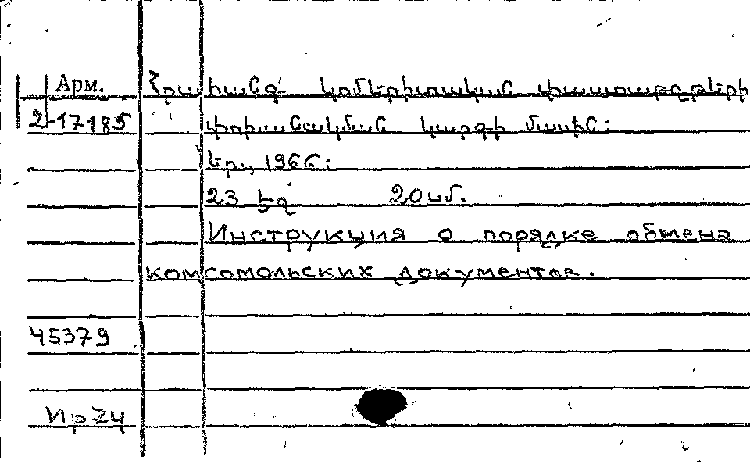 Арм. Հրահանգ կոմերիտական փաստաթղթերի
2-17185 փոխանակման կարգի մասին:
Եր., 1966:
23 էջ 20սմ.
Инструкция о порядке обмена
комсомольских документов.
45379